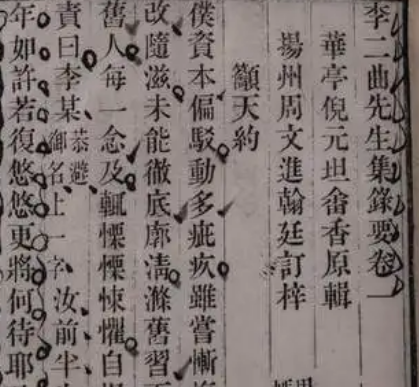 李二曲先生集錄要卷一
華亭倪元坦畬香原輯
揚州周文進翰廷訂梓
籲天約
僕資本偏駁動多疵疚雖嘗慚
改隨滋未能徹底廓清滌舊習
舊人每一念及輒慄慄悚懼自
責曰李某恭避御名上一字汝前半
年如許若復悠悠更將何待耶